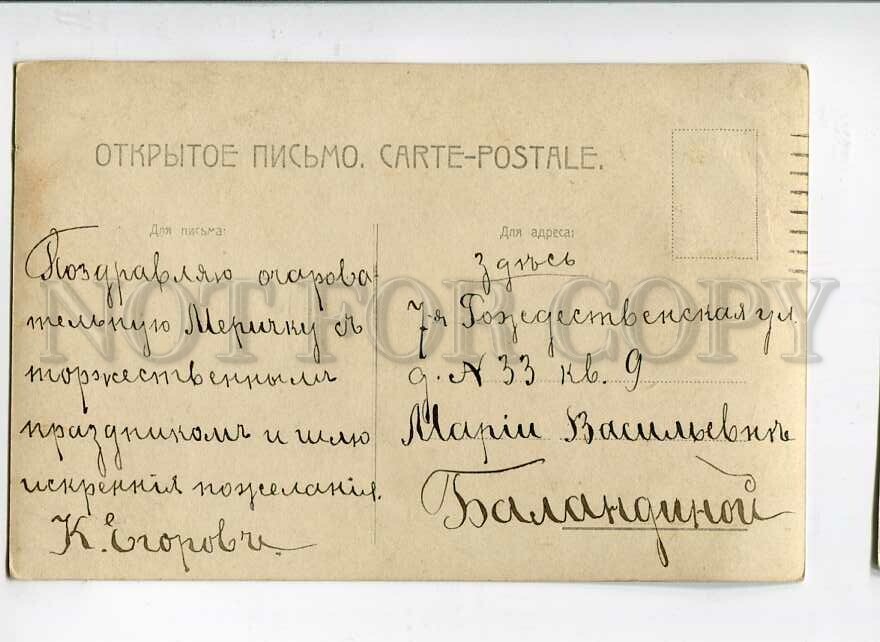 ОТКРЫТОЕ ПИСЬМО. CARTE-POSTALE.
Для письма:
Поздравляю очарова-
тельную Меричку съ
торжественнымъ
праздникомъ и шлю
искреннія пожеланія.
К. Егоровъ.
Для адреса:
Здѣсь
7я Рождественская ул.
д. № 33 кв. 9
Маріи Васильевнѣ
Баландиной
NOT FOR COPY